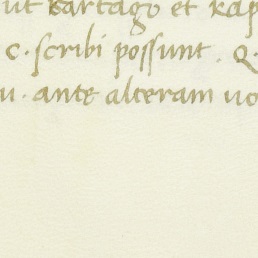 ut kartago et kap
c · scribi possunt . Q
u · ante alteram uo